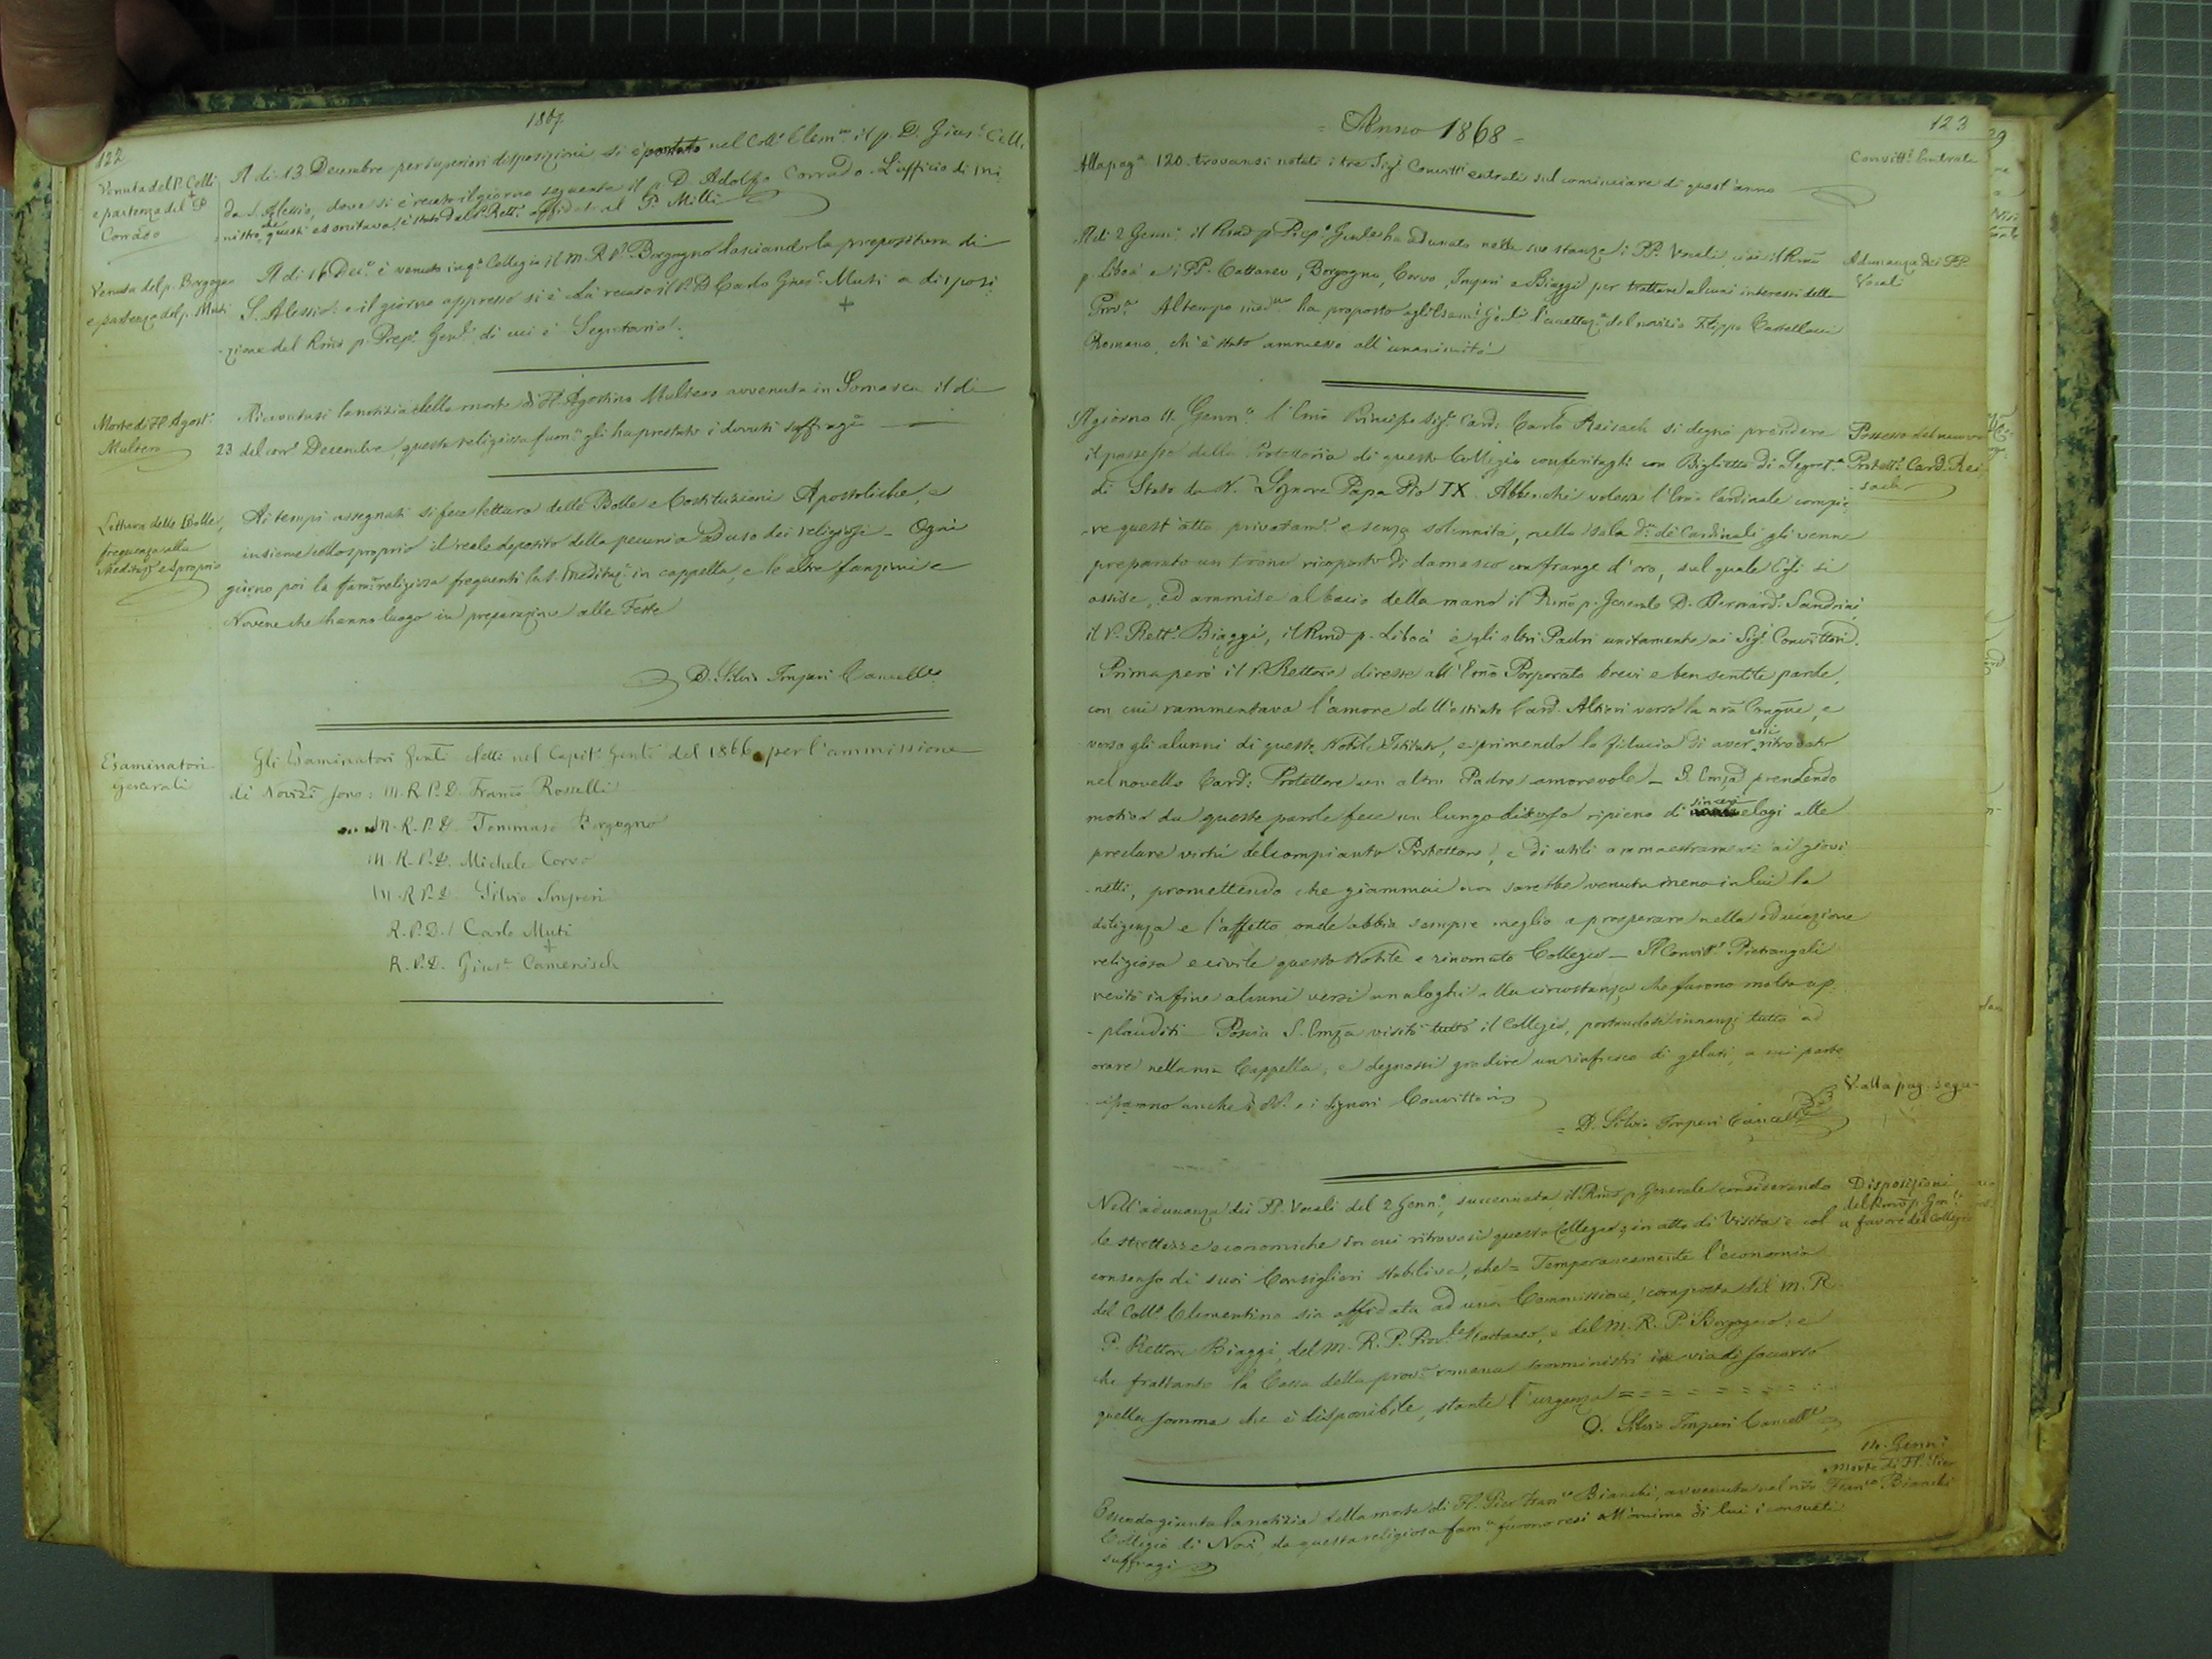 1867.
122
Venuta del P. Celli
e partenza del P.
Corrado
A di 13 Decembre per superiori disposizioni si è portato nel Coll.o Clem.no il p. D. Gius.e Celli
da S. Alessio, dove si è recato il giorno seguente il p. D. Adolfo Corrado. L'ufficio di Mi
nistro, che questi esercitava, è stato dal P. Rett.e affidato al P. Milli
Venuta del p. Borgogno
e partenza del p. Muti
A di 16 Dec.e è venuto in q.o Collegio il M. R. P. Borgogno lasciando la prepositura di
S. Alessio: e il giorno appresso si è là recato il P. D. Carlo Gius.e Muti a disposi
zione del Rmo p. Prep.o Gen.le di cui è Segretario.
Morte di Fr. Agost.o
Multero
Ricevutasi la notizia della morte di Fr. Agostino Multero avvenuta in Somasca il di
23 del corr. Decembre, questa religiosa fam.a gli ha prestato i dovuti suffragi
Lettura delle Bolle,
frequenza alla
Meditaz.e e Sproprio
Ai tempi assegnati si fece lettura delle Bolle e Costituzioni Apostoliche, e
insieme collo sproprio il reale deposito della pecunia ad uso dei religiosi - Ogni
giorno poi la fam.a religiosa frequentò la S. Meditaz.e in cappella, e le altre funzioni e
Novene che hanno luogo in preparazione alle Feste
D. Silvio Imperi Cancell.e
Esaminatori
generali
Gli Esaminatori Genli eletti nel Capit.o Genle del 1866 per l'ammissione
di Novizi sono: M. R. P. D. Franco Rosselli
M. R. P. D. Tommaso Borgogno
M. R. P. D. Michele Corvo
M. R. P. D. Silvio Imperi
R. P. D. Carlo Muti
R. P. D. Gius.e Camenisch
= Anno 1868 -
123
Alla pag.a 120. trovansi notati i tre Sig.i Convitt.i entrati sul cominciare di quest'anno
Convitt.i Entrati
A di 2 Genn.o il Rmo p. Prep.o Gnle ha adunato nelle sue stanze i PP. Vocali, cioè il Rmo
p. Libois e i PP. Cattaneo, Borgogno, Corvo, Imperi e Biaggi per trattare alcuni interessi della
Prov.a Al tempo med.mo ha proposto agli Esami Genli l'accettaz.e del novizio Filippo Castellani
Romano, ch'è stato ammesso all'unanimità
Adunanza dei PP.
Vocali
Il giorno 11. Genn.o l'Emo Principe Sig.r Card. Carlo Reisach si degnò prendere
il possesso della Protettoria di questo Collegio conferitagli con Biglietto di Segret.a
di Stato da N. Signore Papa Pio IX. Abbenchè volesse l'Emo Cardinale compie
-re quest'atto privatam.e e senza solennità, nella sala d.a dei Cardinali gli venne
preparato un trono ricoperto di damasco con frange d'oro, sul quale Egli si
assise, ed ammise al bacio della mano il Rmo p. Generale D. Bernard.o Sandrini,
il P. Rett.e Biaggi, il Rmo p. Libois e gli altri Padri unitamente ai Sig.i Convittori.
Possesso del nuovo
Protett.e Card. Rei
-sach
Prima però il P. Rettore diresse all'Emo Porporato brevi e ben sentite parole,
con cui rammentava l'amore dell'estinto Card. Altieri verso la nra Congne, e
verso gli alunni di questo Nobile Istituto, esprimendo la fiducia di aver essi ritrovato
nel novello Card. Protettore un altro Padre amorevole - S. Emza prendendo
motivo da queste parole fece un lungo discorso ripieno di sinceri elogi alle
preclare virtù del compianto Protettore, e di utili ammaestramenti ai giovi
-netti, promettendo che giammai non sarebbe venuta meno in lui la
diligenza e l'affetto onde abbia sempre meglio a prosperare nella educazione
religiosa e civile questo Nobile e rinomato Collegio - Il Convitt.e Pietrangeli
recitò in fine alcuni versi analoghi alla circostanza che furono molto ap
-plauditi - Poscia S. Emza visitò tutto il Collegio, portandosi innanzi tutto ad
orare nella nra Cappella, e degnossi gradire un rinfresco di gelati, a cui parte
ciparono anche i NN. e i Signori Convittori
V. alla pag. segu-
= D. Silvio Imperi Cancell.e
Nell'adunanza dei PP. Vocali del 2 Genn.o, succennata, il Rmo p. Generale considerando
le strettezze economiche in cui ritrovasi questo Collegio, in atto di Visita e col
consenso di suoi Consiglieri stabilisce, che = Temporaneamente l'economia
del Coll.o Clementino sia affidata ad una Commissione, composta del M. R.
P. Rettore Biaggi, del M. R. P. Prov.le Cattaneo, e del M. R. P. Borgogno: e
che frattanto la Cassa della prov.a romana somministri in via di soccorso
quella somma che è disponibile, stante l'urgenza = = = = = = =
D. Silvio Imperi Cancell.e
Disposizioni
del Rmo p. Gen.le
a favore del Collegio
14. Genn.o
Morte di Fr. Pier
Fran.co Bianchi
Essendo giunta la notizia della morte di Fr. Pier Fran.co Bianchi, avvenuta nel nro
Collegio di Novi, da questa religiosa fam.a furono resi all'anima di lui i consueti
suffragi